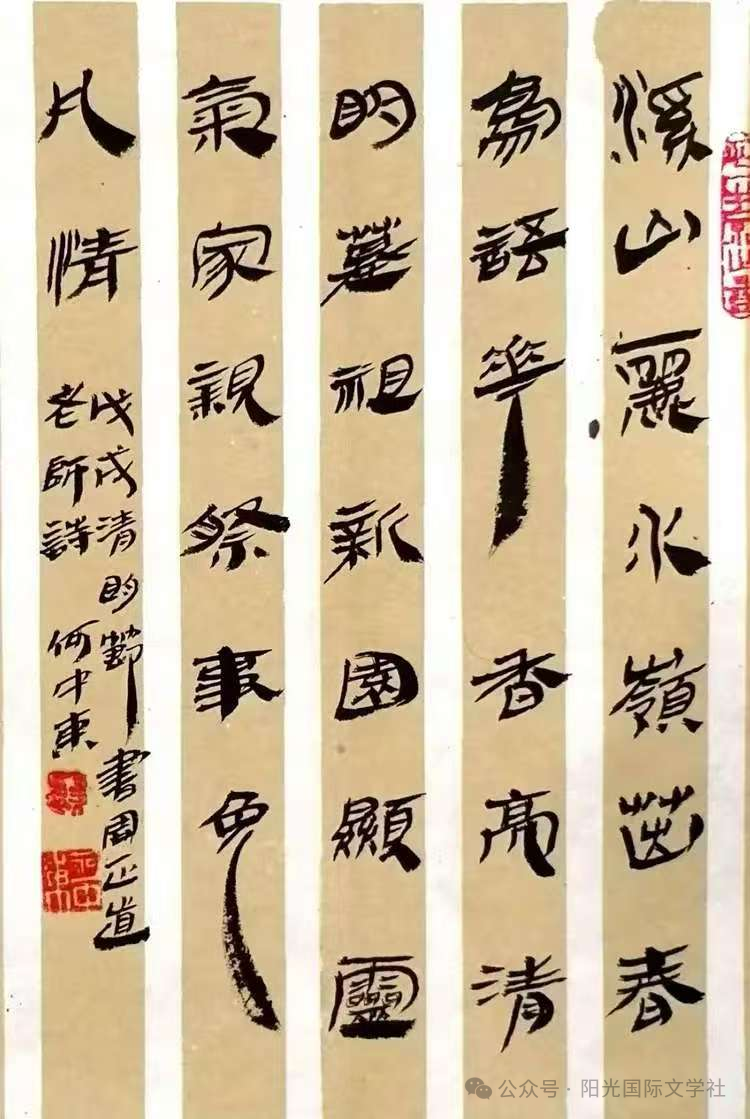 溪山麗水嶺茁春
鳥語華香亮清
明墓祖新園顯靈
氣家親祭事免
凡情
戊戌清明節書周正道
老師詩 何中東
公众号 · 阳光国际文学社